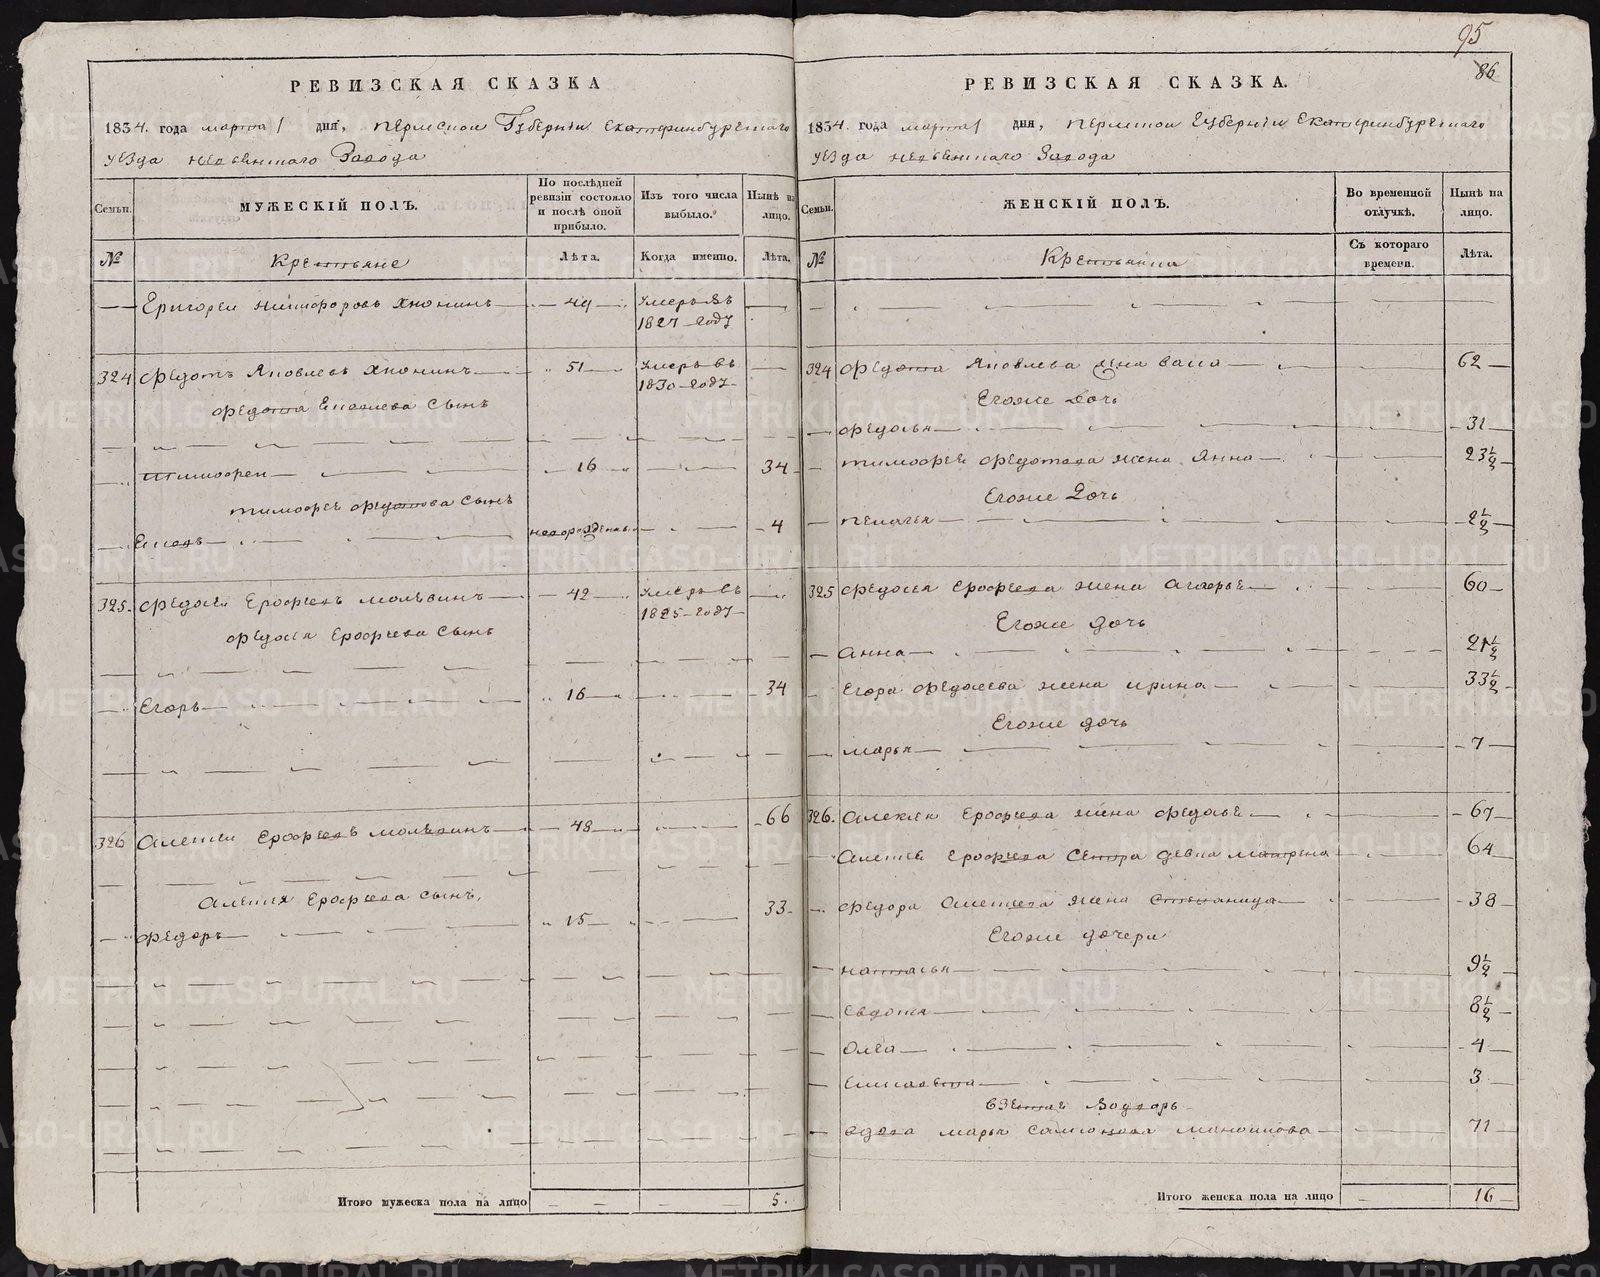 95
РЕВИЗСКАЯ СКАЗКА
1834. года марта 1 дня, пермской Губерніи Екатеринбургскаго
уезда невьянскаго Завода
Семьи.
МУЖЕСКІЙ ПОЛЪ.
По послѣдней ревизіи состояло и послѣ оной прибыло.
Изъ того числа выбыло.
Нынѣ на лицо.
№
Крестьяне
Лѣта.
Когда именно.
Лѣта.
Григореи Никифоровъ 49 умеръ въ
1827 году
324 Федотъ Яковлевъ 51 умеръ въ
1830 году
федота Яковлева сынъ
тимофеи 16 34
тимофея федотова сынъ
новорожденъ 4
325. федосеи Ерофеевъ 42 умеръ въ
1825 году
федосея Ерофеева сынъ
Егоръ 16 34
326 Алексеи Ерофеевъ 48 66
Алексея Ерофеева сынъ,
федоръ 15 33
Итого мужеска пола на лицо 5.
86
РЕВИЗСКАЯ СКАЗКА.
1834. года марта 1 дня, пермской Губерніи Екатеринбургскаго
уезда невьянскаго Завода
Семьи.
ЖЕНСКІЙ ПОЛЪ.
Во временной отлучкѣ.
Нынѣ на лицо.
№
Съ котораго времени.
Лѣта.
324 федота Яковлева жена 62
Егоже дочь
федосья 31
тимофея федотова жена Анна 23 1/2
Егоже дочь
пелагея 2 1/2
325 федосея Ерофеева жена агафья 60
Егоже дочь
анна 21 1/2
Егора федосеева жена ирина 33 1/2
Егоже дочь
марья 7
326. алексея Ерофеева жена федосья 67
алексея Ерофеева сестра девка матрена 64
федора алексеева жена степанида 38
Егоже дочери
наталья 9 1/2
Евдотья 8 1/2
Олга 4
Елисавета 3
вдова марья 71
Итого женска пола на лицо 16
METRIKI.GASO-URAL.RU